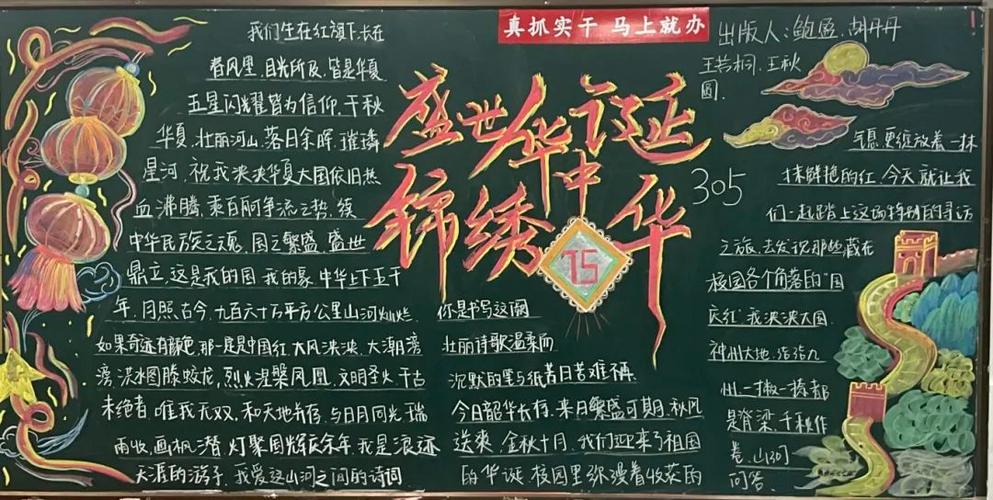 真抓实干 马上就办
盛世华诞
锦绣中华
75
305
出版人：鲍盈、胡丹丹
王芸桐、王秋
圆
我们生在红旗下,长在
春风里,目光所及,皆是华夏
五星闪耀皆为信仰,千秋
华夏,壮丽河山,落日余晖,璀璨
星河,祝我泱泱华夏大国依旧热
血沸腾,乘百舸争流之势,续
中华民族之魂,国之繁盛,盛世
鼎立,这是我的国,我的家,中华上下五千
年,同照古今,九百六十万平方公里山河灿烂
如果奇迹有颜色,那一定是中国红,大风泱泱,大潮滂
滂,洪水图腾蛟龙,烈火涅槃凤凰,文明圣火,千古
未绝者,唯我无双,和天地并存,与日月同光,瑞
雨收,画帆 灯聚国辉庆余年,我是浪迹
天涯的游子,我爱这山河之间的诗词
你是书写这阕
壮丽诗歌温柔而
沉默的墨与纸,昔日苦难不再
今日韶华长存,来日繁盛可期,秋风
送爽,金秋十月,我们迎来了祖国
的华诞,校园里弥漫着收获的
气息,更绽放着一抹
抹鲜艳的红,今天就让我
们一起踏上这场特别的寻访
之旅,去发现那些藏在
校园各个角落的"国
庆红",我泱泱大国
神州大地,浩浩九
州,一撇一捺都
是脊梁,千秋作
卷,山河
问答